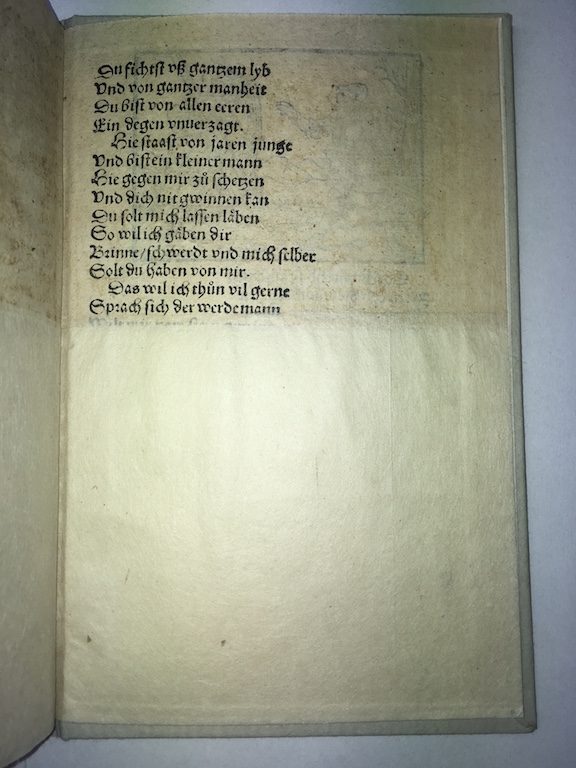 Du fichtst vß gantzem lyb
Vnd von gantzer manheit
Du bist von allen eeren
Ein degen vnuerzagt.
Hie staast von jaren junge
Vnd bist ein kleiner mann
Hie gegen mir zů schetzen
Vnd dich nit gwinnen kan
Du solt mich lassen läben
So wil ich gäben dir
Brinne/schwerdt vnd mich selber
Solt du haben von mir.
Das wil ich thůn vil gerne
Sprach sich der werde mann